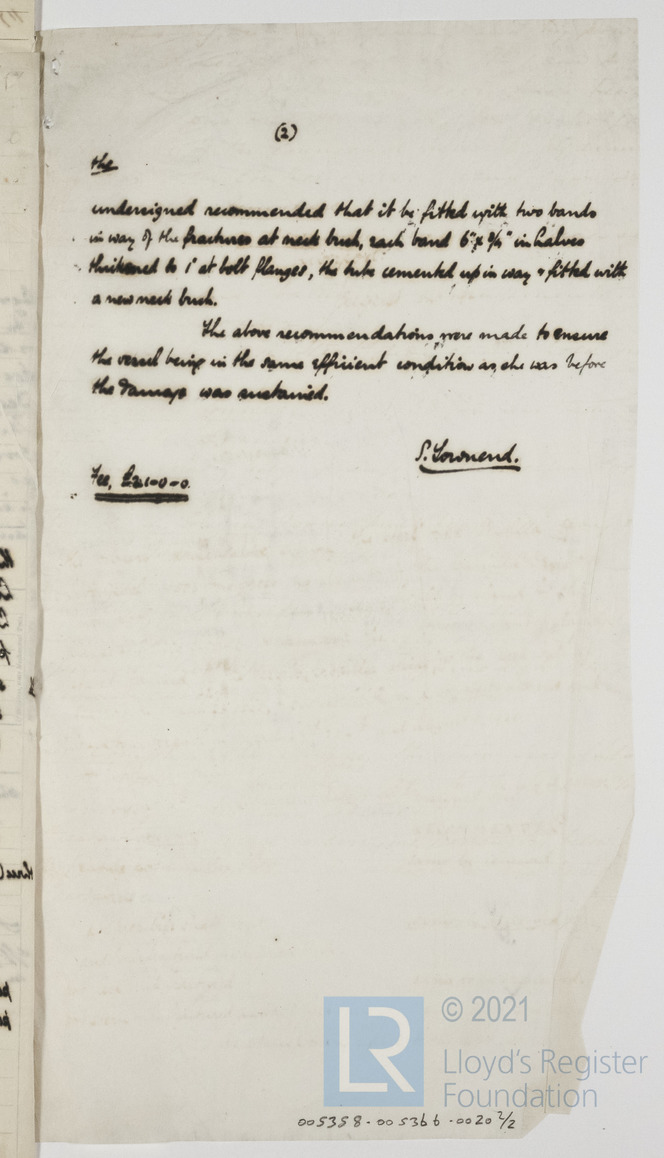 (2)
the
undersigned recommended that it be fitted with two bands
in way of the fractures at neck bush, each band 6" x 3/4" in halves
thickened to 1" at bolt flanges, the tube cemented up in way & fitted with
a new neck bush.
The above recommendations were made to ensure
the vessel being in the same efficient condition as she was before
the damage was sustained.
S. Townend.
Fee, £21-0-0.
three
LR
© 2021
Lloyd's Register
Foundation
005358-005366-0020 2/2